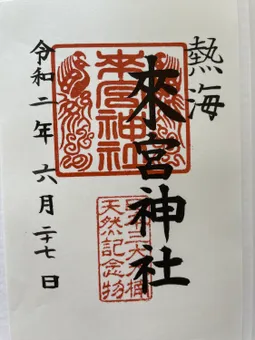 熱海
來宮神社
來宮神社
大樟
天然記念物
令和二年六月二十七日